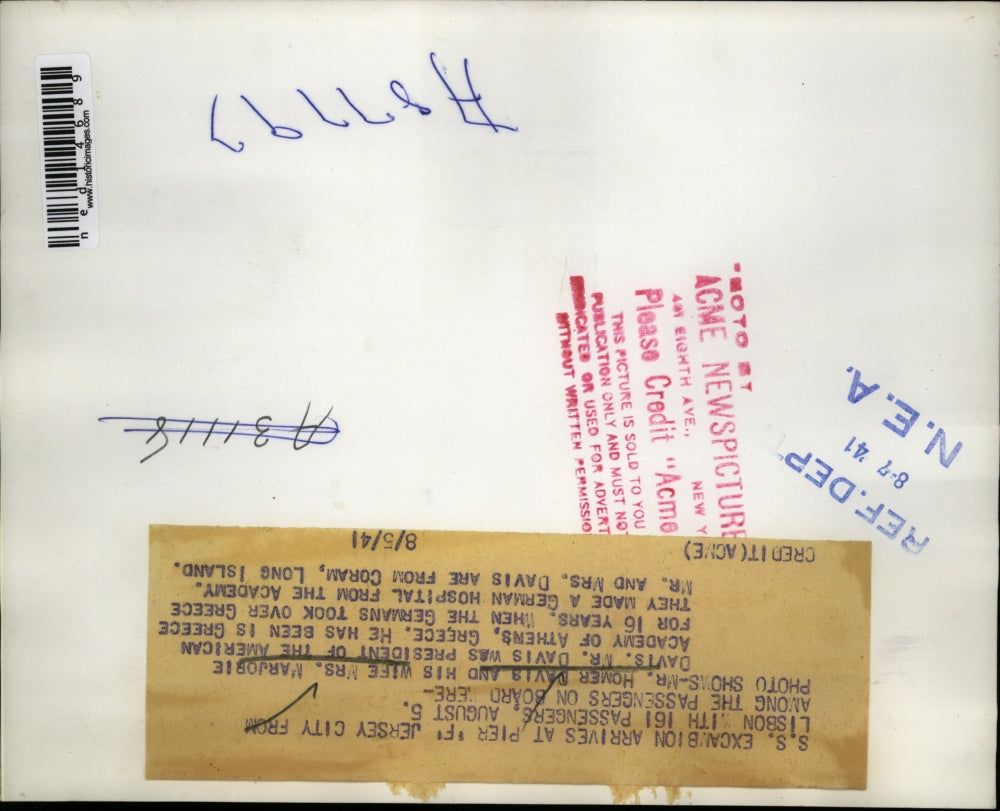 A87797
ned14689
www.historicimages.com
"HOTO BY
ACME NEWSPICTURE
461 EIGHTH AVE., NEW Y
Please Credit "Acme
THIS PICTURE IS SOLD TO YOU
PUBLICATION ONLY AND MUST NOT
SYNDICATED OR USED FOR ADVERT
WITHOUT WRITTEN PERMISSIO
REF. DEPT
8-7 '41
N.E.A.
A31118
S.S. EXCAMBION ARRIVES AT PIER "F" JERSEY CITY FROM
LISBON WITH 161 PASSENGERS. AUGUST 5.
AMONG THE PASSENGERS ON BOARD WERE-
PHOTO SHOWS-MR. HOMER DAVIS AND HIS WIFE MRS. MARJORIE
DAVIS. MR. DAVIS WAS PRESIDENT OF THE AMERICAN
ACADEMY OF ATHENS, GREECE. HE HAS BEEN IS GREECE
FOR 16 YEARS. WHEN THE GERMANS TOOK OVER GREECE
THEY MADE A GERMAN HOSPITAL FROM THE ACADEMY.
MR. AND MRS. DAVIS ARE FROM CORAM, LONG ISLAND.
CREDIT(ACME) 8/5/41